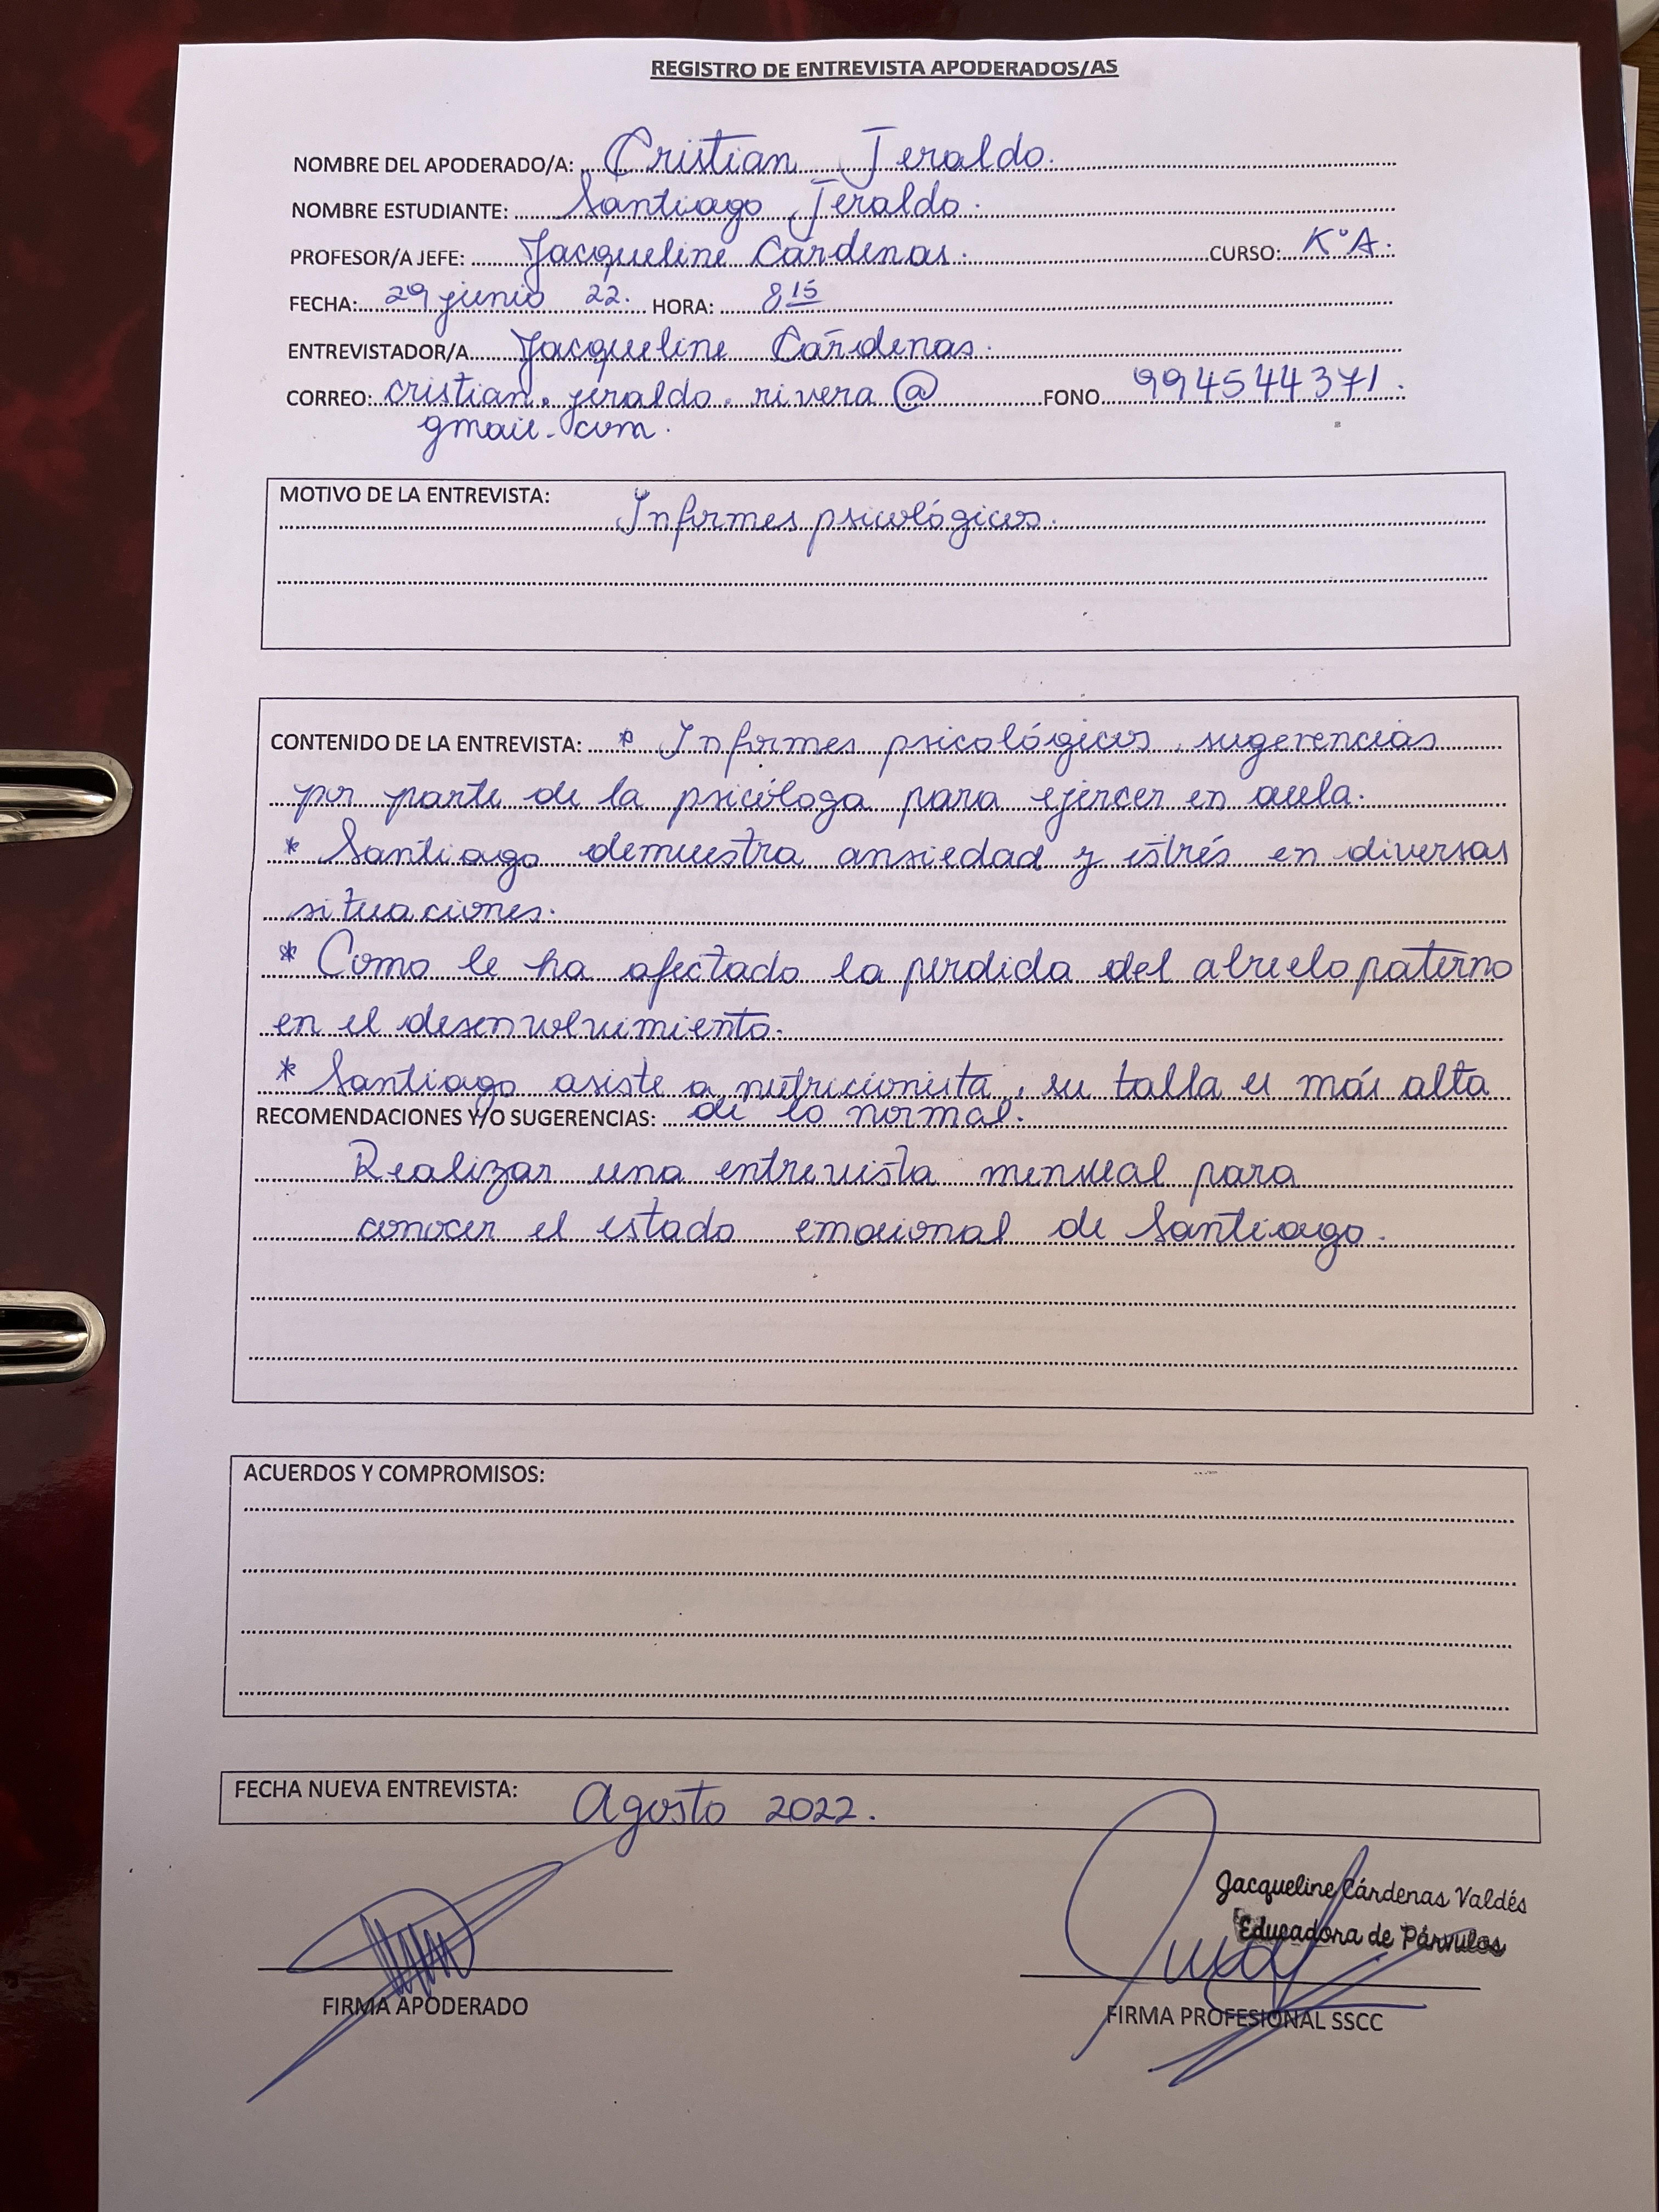 REGISTRO DE ENTREVISTA APODERADOS/AS
NOMBRE DEL APODERADO/A: Cristian Jeraldo.
NOMBRE ESTUDIANTE: Santiago Jeraldo.
PROFESOR/A JEFE: Jacqueline Cárdenas. CURSO: K°A.
FECHA: 29 junio 22. HORA: 8 15
ENTREVISTADOR/A Jacqueline Cárdenas.
CORREO: cristian.jeraldo.rivera@ FONO 994544371.
gmail.com.
MOTIVO DE LA ENTREVISTA:
Informes psicológicos.
CONTENIDO DE LA ENTREVISTA: * Informes psicológicos, sugerencias
por parte de la psicóloga para ejercer en aula.
* Santiago demuestra ansiedad y estrés en diversas
situaciones.
* Como le ha afectado la perdida del abuelo paterno
en el desenvolvimiento.
* Santiago asiste a nutricionista, su talla es más alta
RECOMENDACIONES Y/O SUGERENCIAS: de lo normal.
Realizar una entrevista mensual para
conocer el estado emocional de Santiago.
ACUERDOS Y COMPROMISOS:
FECHA NUEVA ENTREVISTA: Agosto 2022.
Jacqueline Cárdenas Valdés
Educadora de Párvulos
FIRMA APODERADO
FIRMA PROFESIONAL SSCC